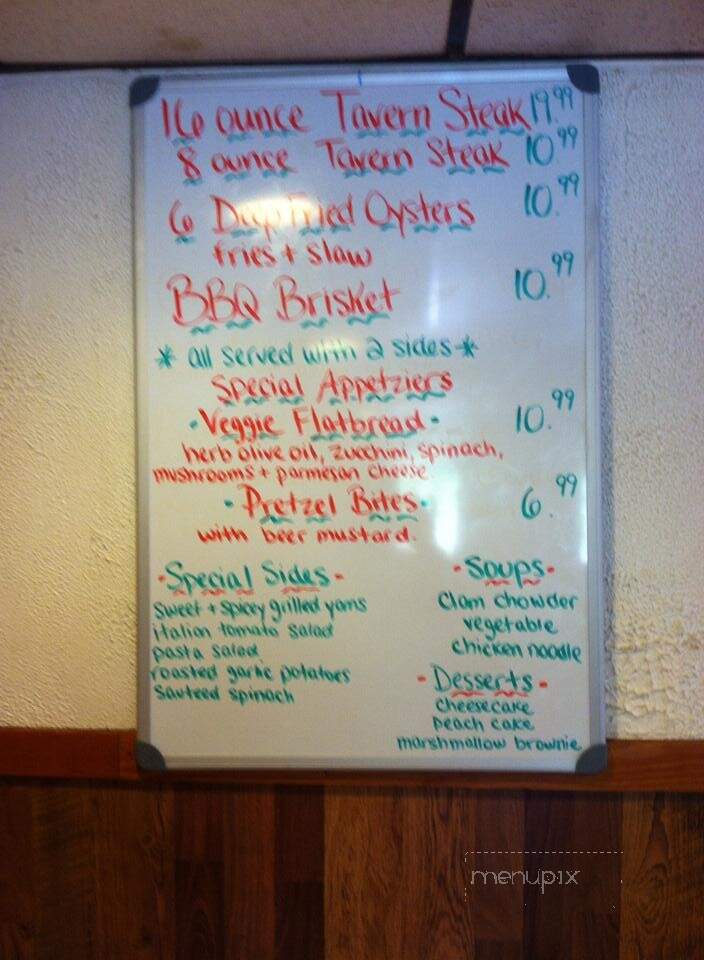 16 ounce Tavern Steak 19.99
8 ounce Tavern Steak 10.99
6 Deep Fried Oysters 10.99
fries + slaw
BBQ Brisket 10.99
* all served with 2 sides *
Special Appetziers
• Veggie Flatbread • 10.99
herb olive oil, zucchini, spinach,
mushrooms + parmesan cheese
• Pretzel Bites • 6.99
with beer mustard.
- Special Sides -
sweet + spicey grilled yams
italian tomato salad
pasta salad
roasted garlic potatoes
sauteed spinach
- Soups -
Clam chowder
vegetable
chicken noodle
- Desserts -
cheesecake
peach cake
marshmallow brownie
menupix